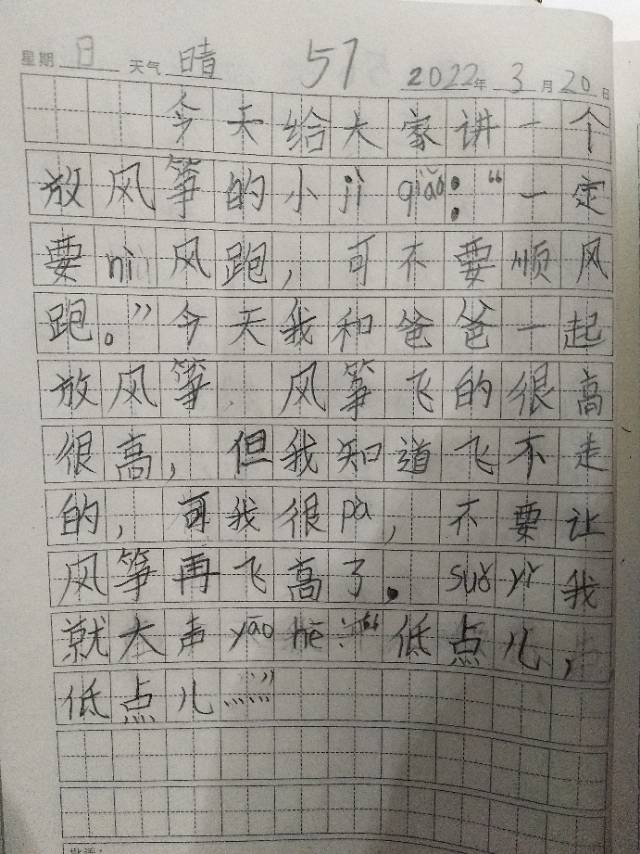 星期 日 天气 晴 57 2022年 3月 20日
今天给大家讲一个
放风筝的小jì qiǎo：“一定
要nì风跑，可不要顺风
跑。”今天我和爸爸一起
放风筝 风筝飞的很高
很高，但我知道飞不走
的，可我很pà，不要让
风筝再飞高了。suǒ yǐ我
就大声yāo hè：“低点儿，
低点儿……”